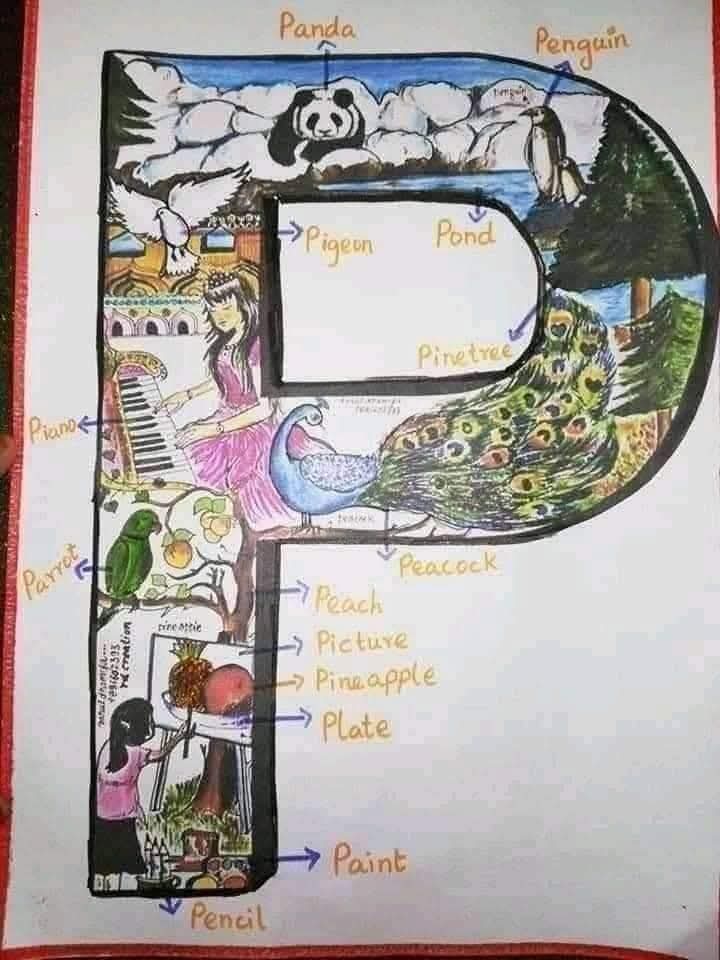 Panda
Penguin
penguin
Pigeon
Pond
Pinetree
Piano
Peacock
Parrot
Peach
pineapple
Picture
Pineapple
Plate
rd creation
Paint
Pencil